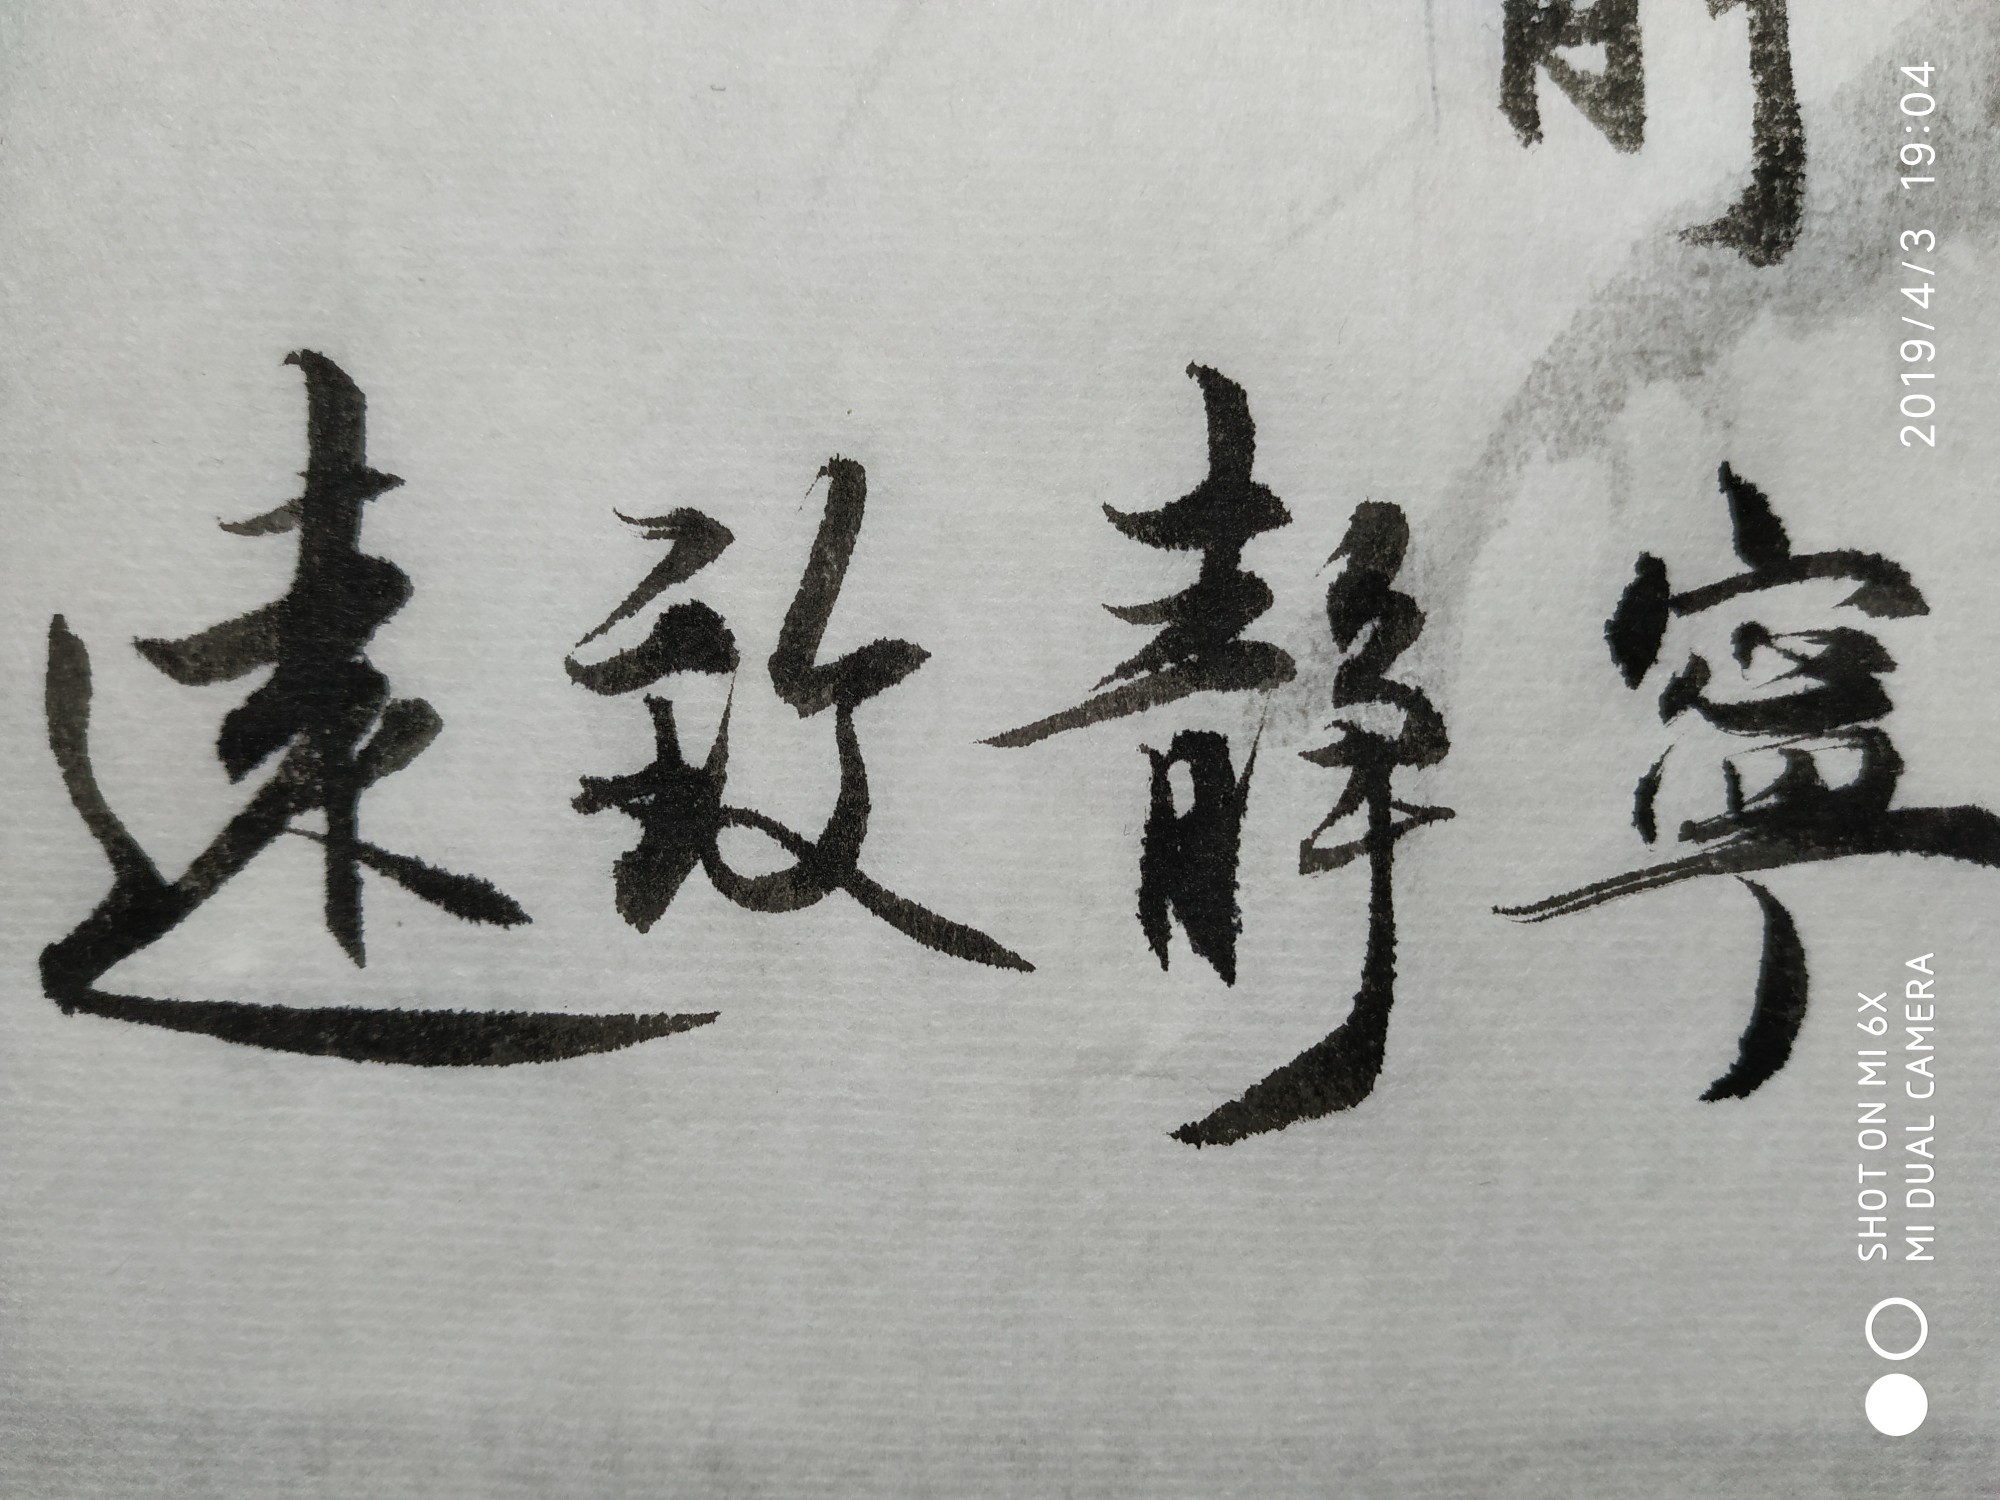 寧靜致遠
2019/4/3 19:04
SHOT ON MI 6X
MI DUAL CAMERA